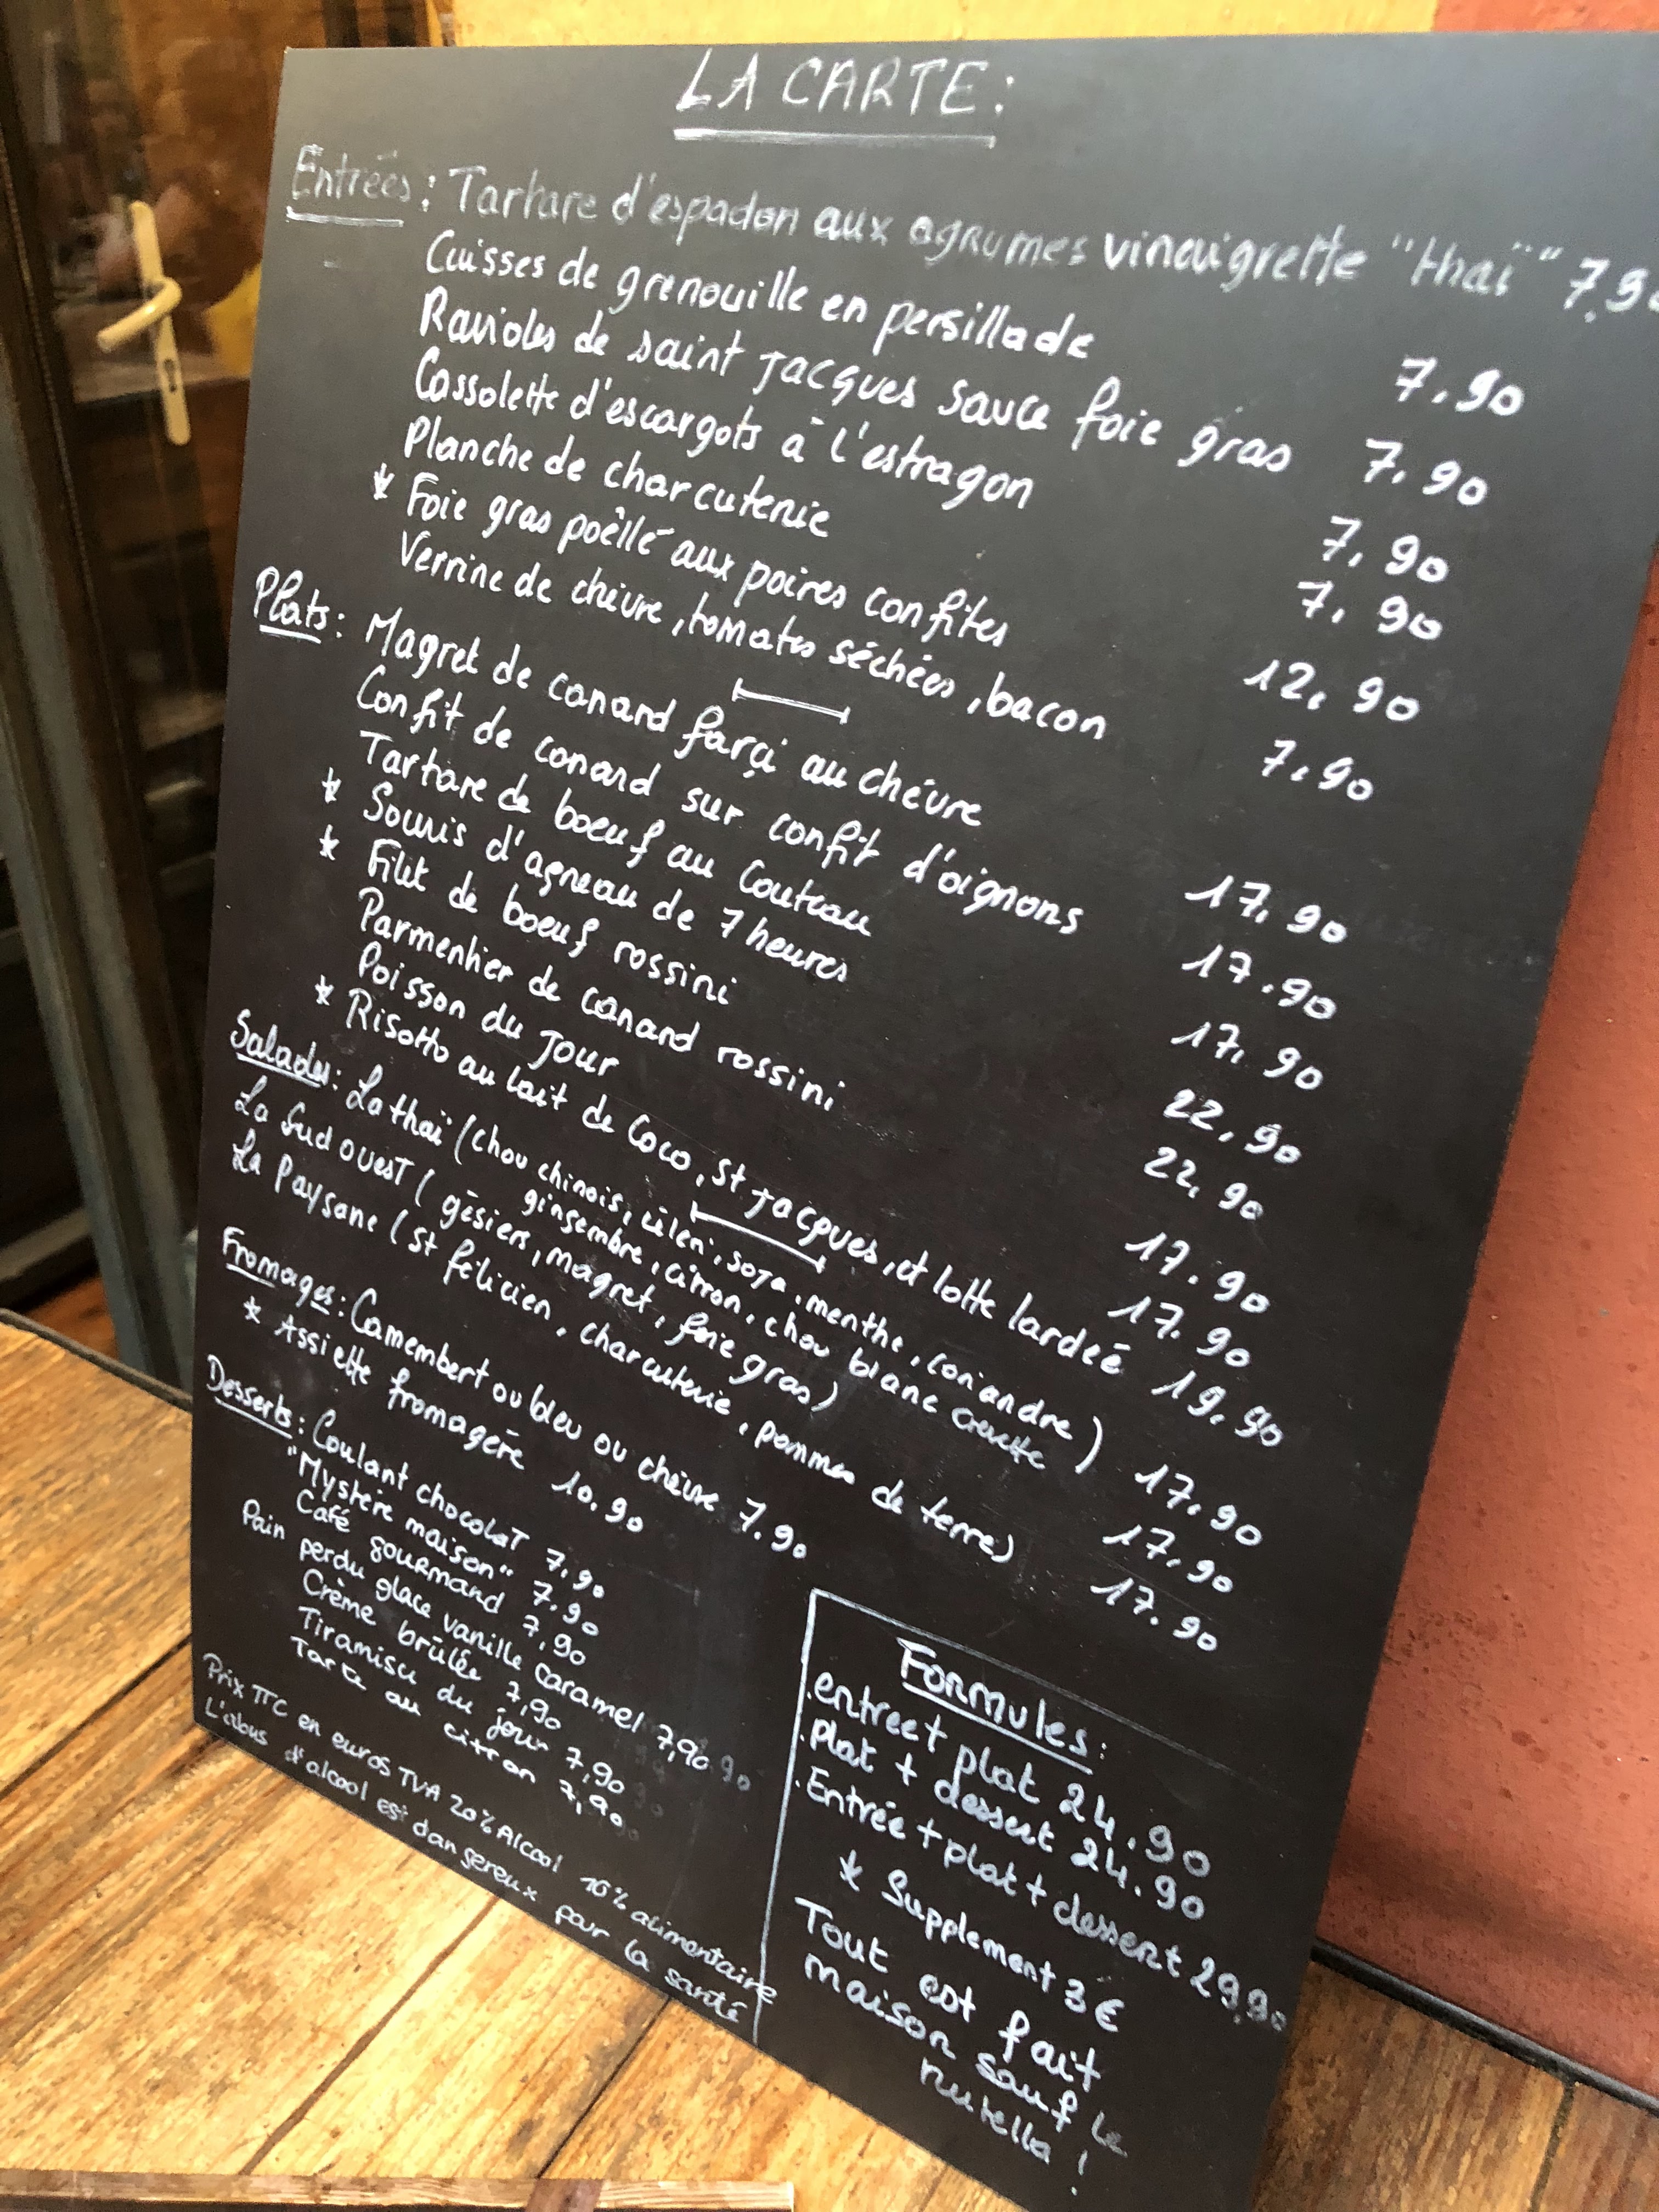 LA CARTE:
Entrées: Tartare d'espadon aux agrumes vinaigrette "thaï" 7.90
Cuisses de grenouille en persillade 7.90
Ravioles de saint jacques sauce foie gras 7.90
Cassolette d'escargots à l'estragon 7.90
Planche de charcuterie 7.90
* Foie gras poêllé aux poires confites 12.90
Verrine de chèvre, tomates séchées, bacon 7.90
Plats: Magret de canard farçi au chèvre 17.90
Confit de canard sur confit d'oignons 17.90
Tartare de boeuf au couteau 17.90
* Souris d'agneau de 7 heures 22.90
* Filet de boeuf rossini 22.90
Parmentier de canard rossini 17.90
Poisson du jour 17.90
* Risotto au lait de coco, st jacques, et lotte lardée 19.90
Salades: La thaï (chou chinois, céleri, soja, menthe, coriandre) 17.90
gingembre, citron, chou blanc crevette
La Sud ouest (gésiers, magret, foie gras) 17.90
La Paysane (st félicien, charcuterie, pommes de terre) 17.90
Fromages: Camembert ou bleu ou chèvre 7.90
* Assiette fromagère 10.90
Desserts: Coulant chocolat 7.90
"Mystère maison" 7.90
Café gourmand 7.90
Pain perdu glace vanille caramel 7,90
Crème brûlée 7,90
Tiramisu du jour 7,90
Tarte au citron 7,90
Prix TTC en euros TVA 20% Alcool 10% alimentaire
L'abus d'alcool est dangereux pour la santé
Formules:
.entree+ plat 24.90
.plat + dessert 24.90
.Entrée + plat + dessert 29,90
* Supplement 3€
Tout est fait
maison sauf le
nutella!